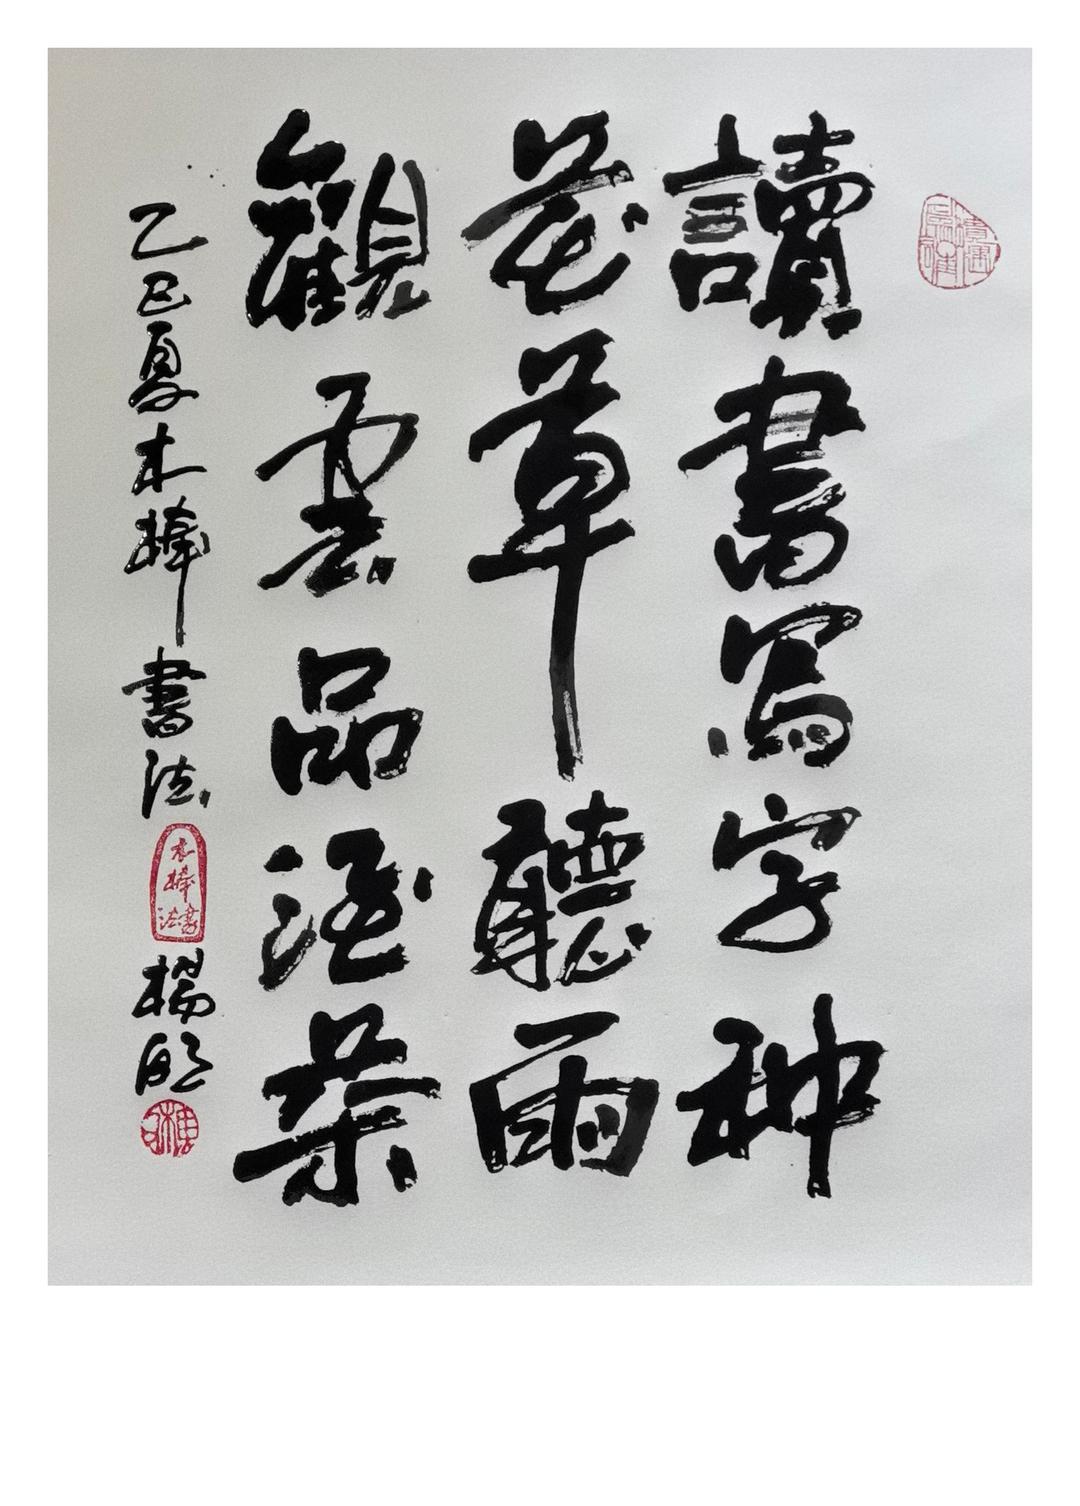 讀書寫字种
花草聽雨
觀雲品酒茶
乙巳夏木棒書法
木棒書法
楊明